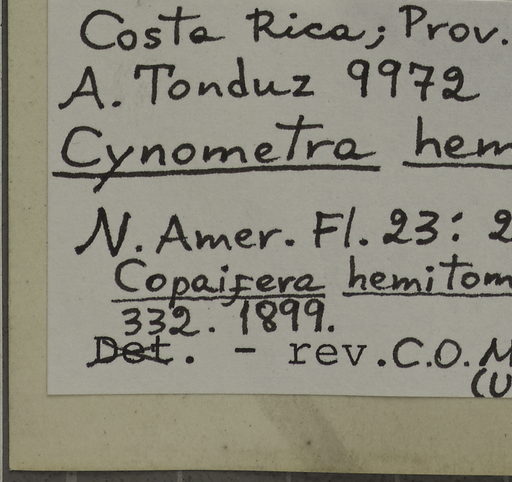 Costa Rica; Prov.
A. Tonduz 9972
Cynometra hem
N. Amer. Fl. 23: 2
Copaifera hemitom
332. 1899.
Det. - rev. C.O. M
(U